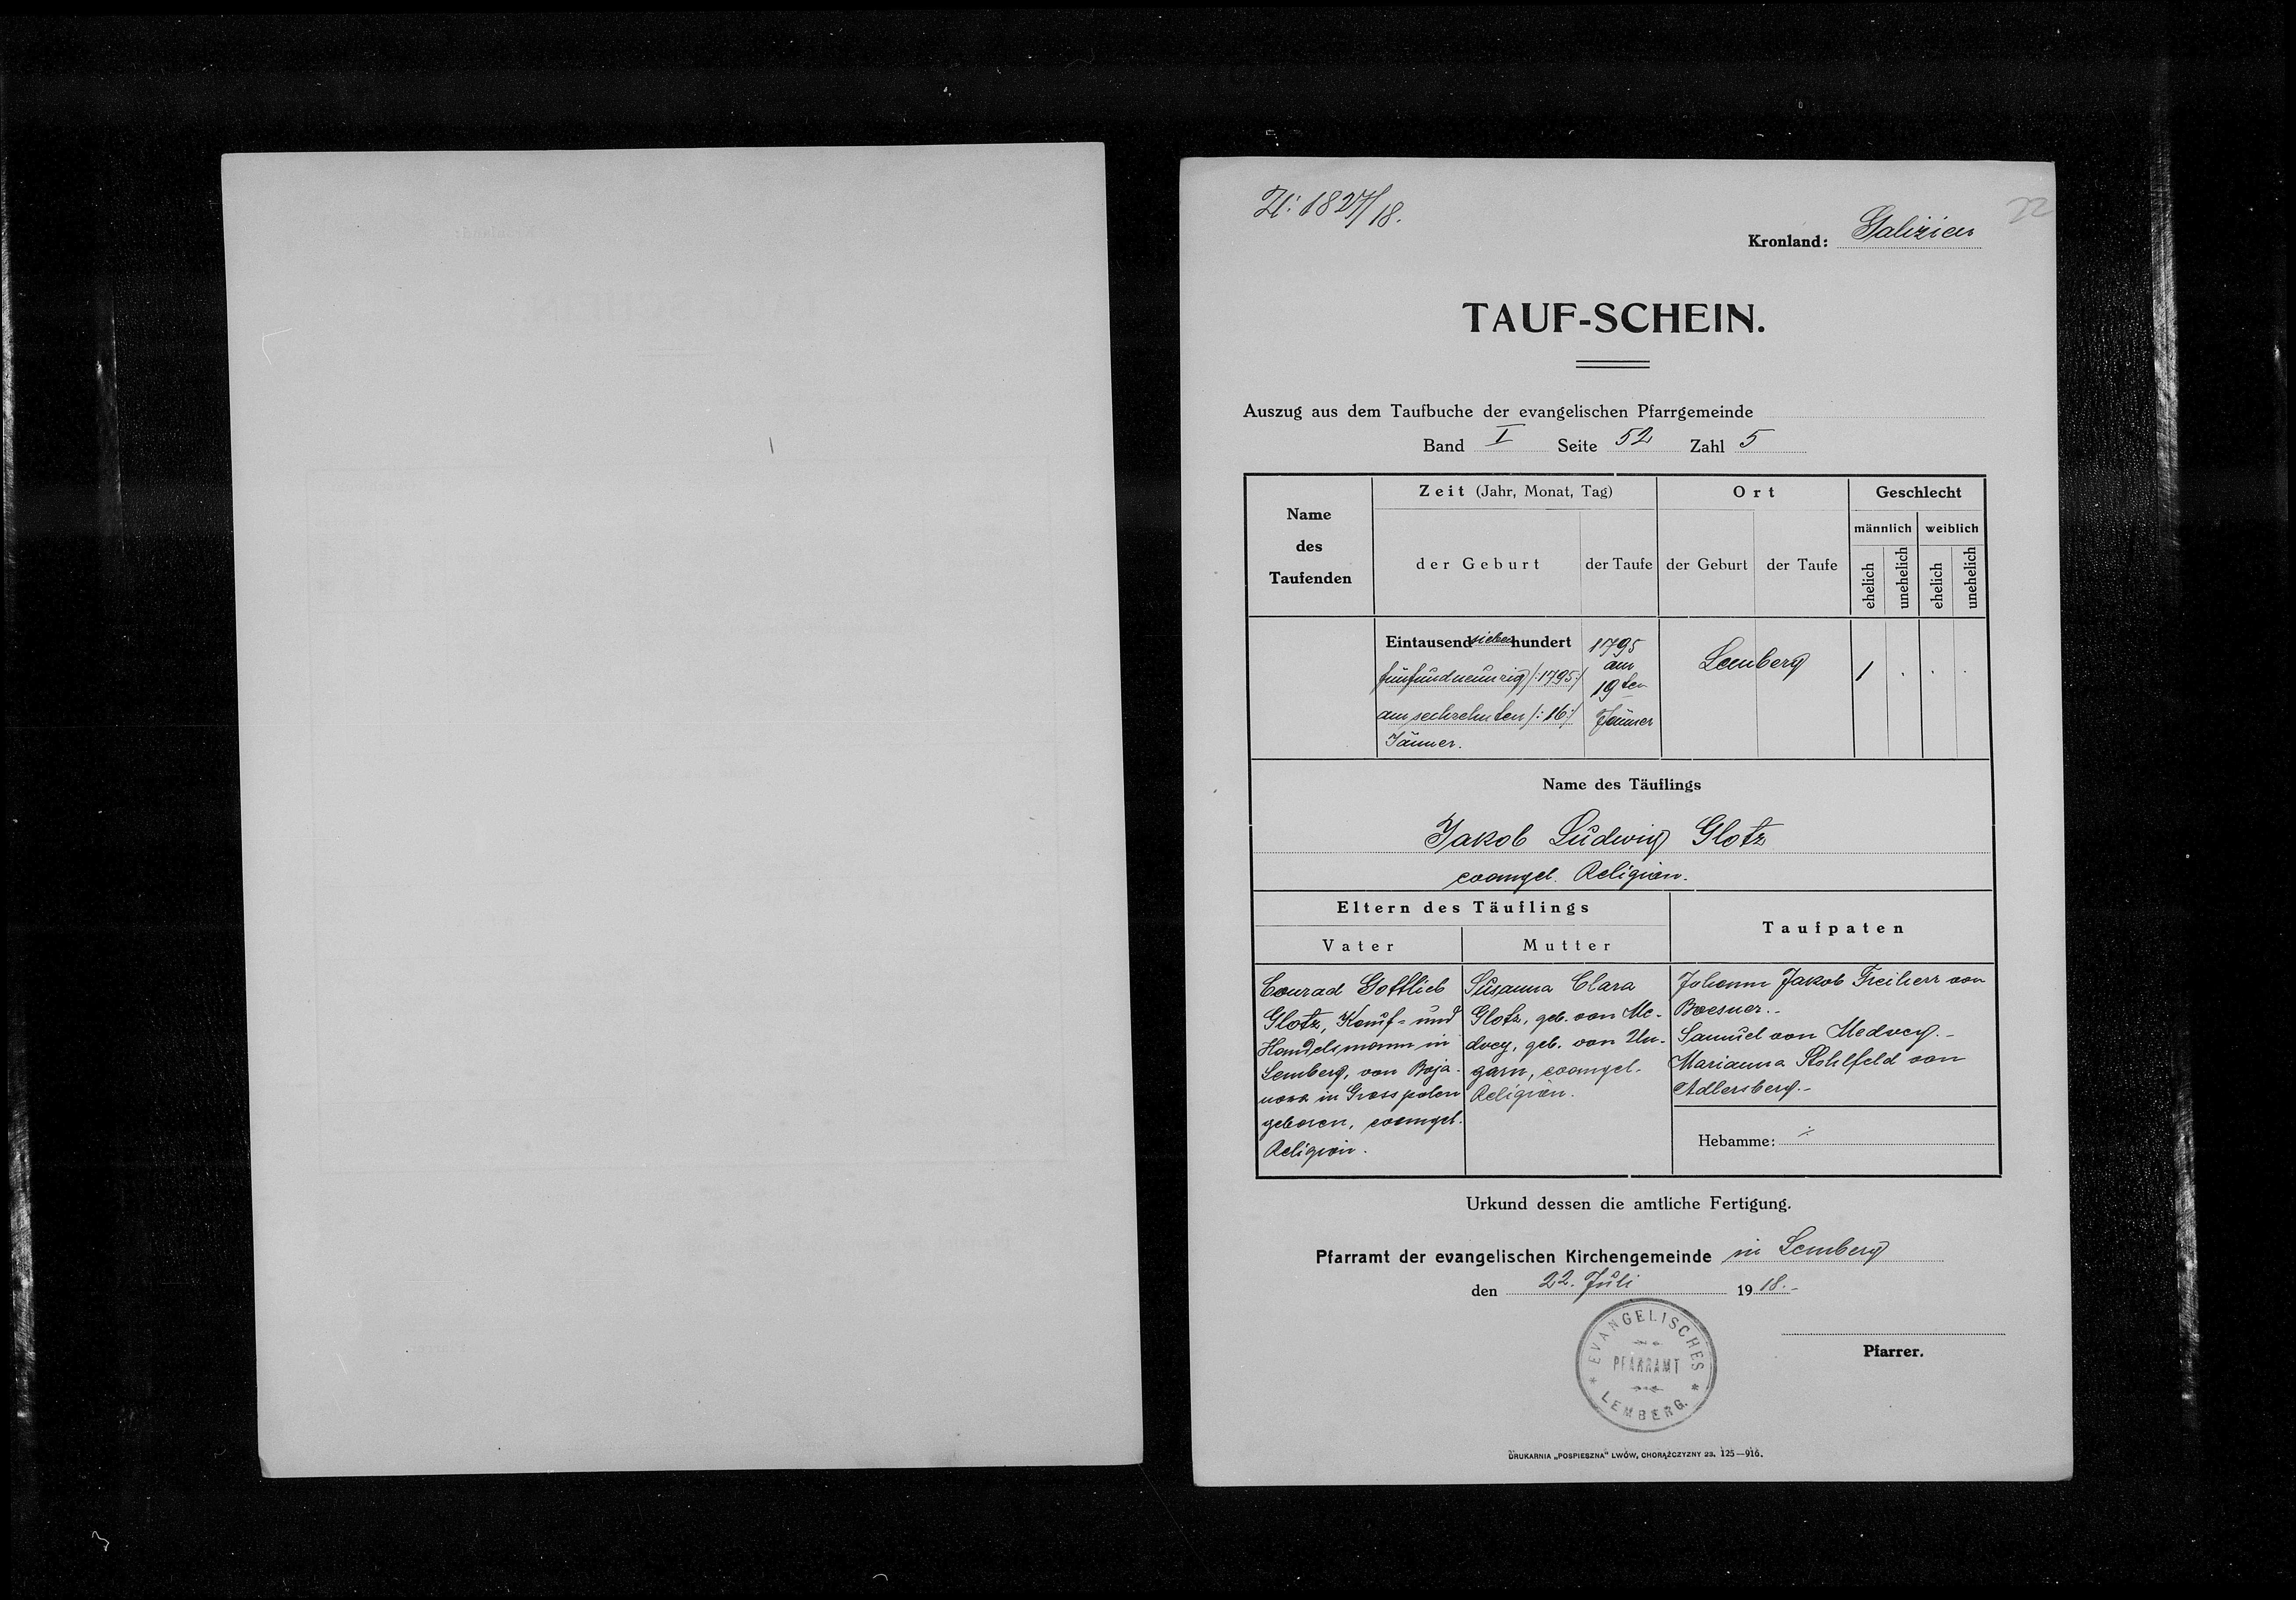 Zl: 1827/18.
22
Kronland: Galizien
TAUF-SCHEIN.
Auszug aus dem Taufbuche der evangelischen Pfarrgemeinde
Band I Seite 52 Zahl 5
Name
des
Taufenden
Zeit (Jahr, Monat, Tag)
der Geburt
der Taufe
Ort
der Geburt
der Taufe
Geschlecht
männlich
weiblich
ehelich
unehelich
ehelich
unehelich
Eintausend siebenhundert
fünfundneunzig /:1795:/
am sechzehnten /:16:/
Jänner.
1795
am
19ten
Jänner
Lemberg
1
Name des Täuflings
Jakob Ludwig Glotz
evangel. Religion.
Eltern des Täuflings
Vater
Mutter
Taufpaten
Conrad Gottlieb
Glotz, Kauf= und
Handelsmann in
Lemberg, von Boja-
nowa in Grosspolen
geboren, evangel.
Religion.
Susanna Clara
Glotz, geb. von Me-
dvey, geb. von Un-
garn, evangel.
Religion.
Johann Jakob Freiherr von
Boesner.-
Samuel von Medvey.-
Marianna Stohlfeld von
Adlersberg.-
Hebamme: ./.
Urkund dessen die amtliche Fertigung.
Pfarramt der evangelischen Kirchengemeinde in Lemberg
den 22. Juli 1918.-
EVANGELISCHES
PFARRAMT
LEMBERG.
Pfarrer.
DRUKARNIA „POSPIESZNA" LWÓW, CHORĄŻCZYZNY 23. 125—916.